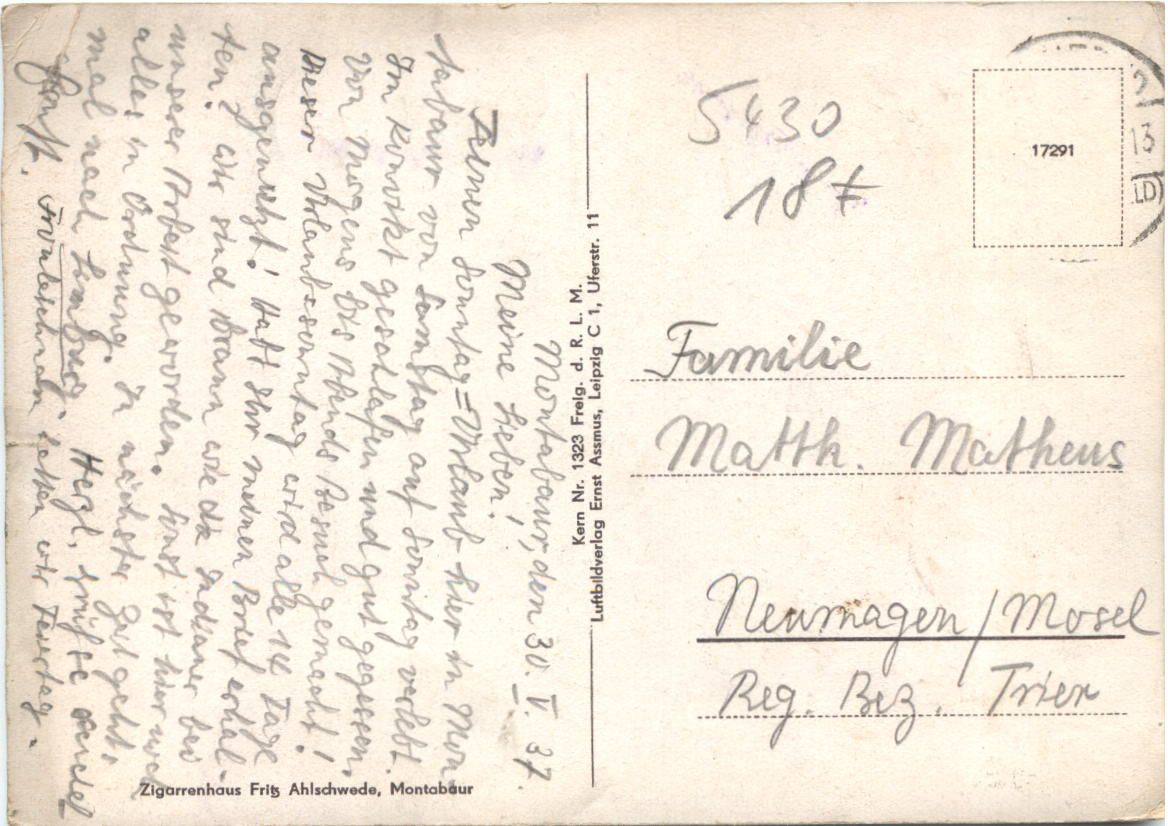 Montabaur, den 30. V. 37.
Meine Lieben!
Seinen Sonntag=Urlaub hier in Mon-
tabaur von Samstag auf Sonntag verlebt.
Im Konvikt geschlafen und gut gegessen,
von Morgens bis Abends Besuch gemacht!
Dieser Urlaubssonntag wird alle 14 Tage
ausgenützt! Habt Ihr meinen Brief erhal-
ten? Wir sind braun wie die Indianer bei
unserer Arbeit geworden. Sonst ist hier noch
alles in Ordnung. In nächster Zeit geht's
mal nach Limburg. Herzl. Grüße sendet
Fronleichnam hatten wir Feiertag.
Kern Nr. 1323 Freig. d. R. L. M.
Luftbildverlag Ernst Assmus, Leipzig C 1, Uferstr. 11
Zigarrenhaus Fritz Ahlschwede, Montabaur
5430
18
17291
13
LD)
Familie
Matth. Matheus
Neumagen/Mosel
Reg. Bez. Trier